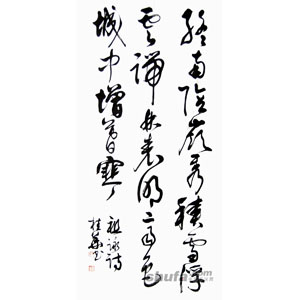 终南阴岭秀积雪浮
云端林表明霁色
城中增暮寒
祖咏诗
桂华书